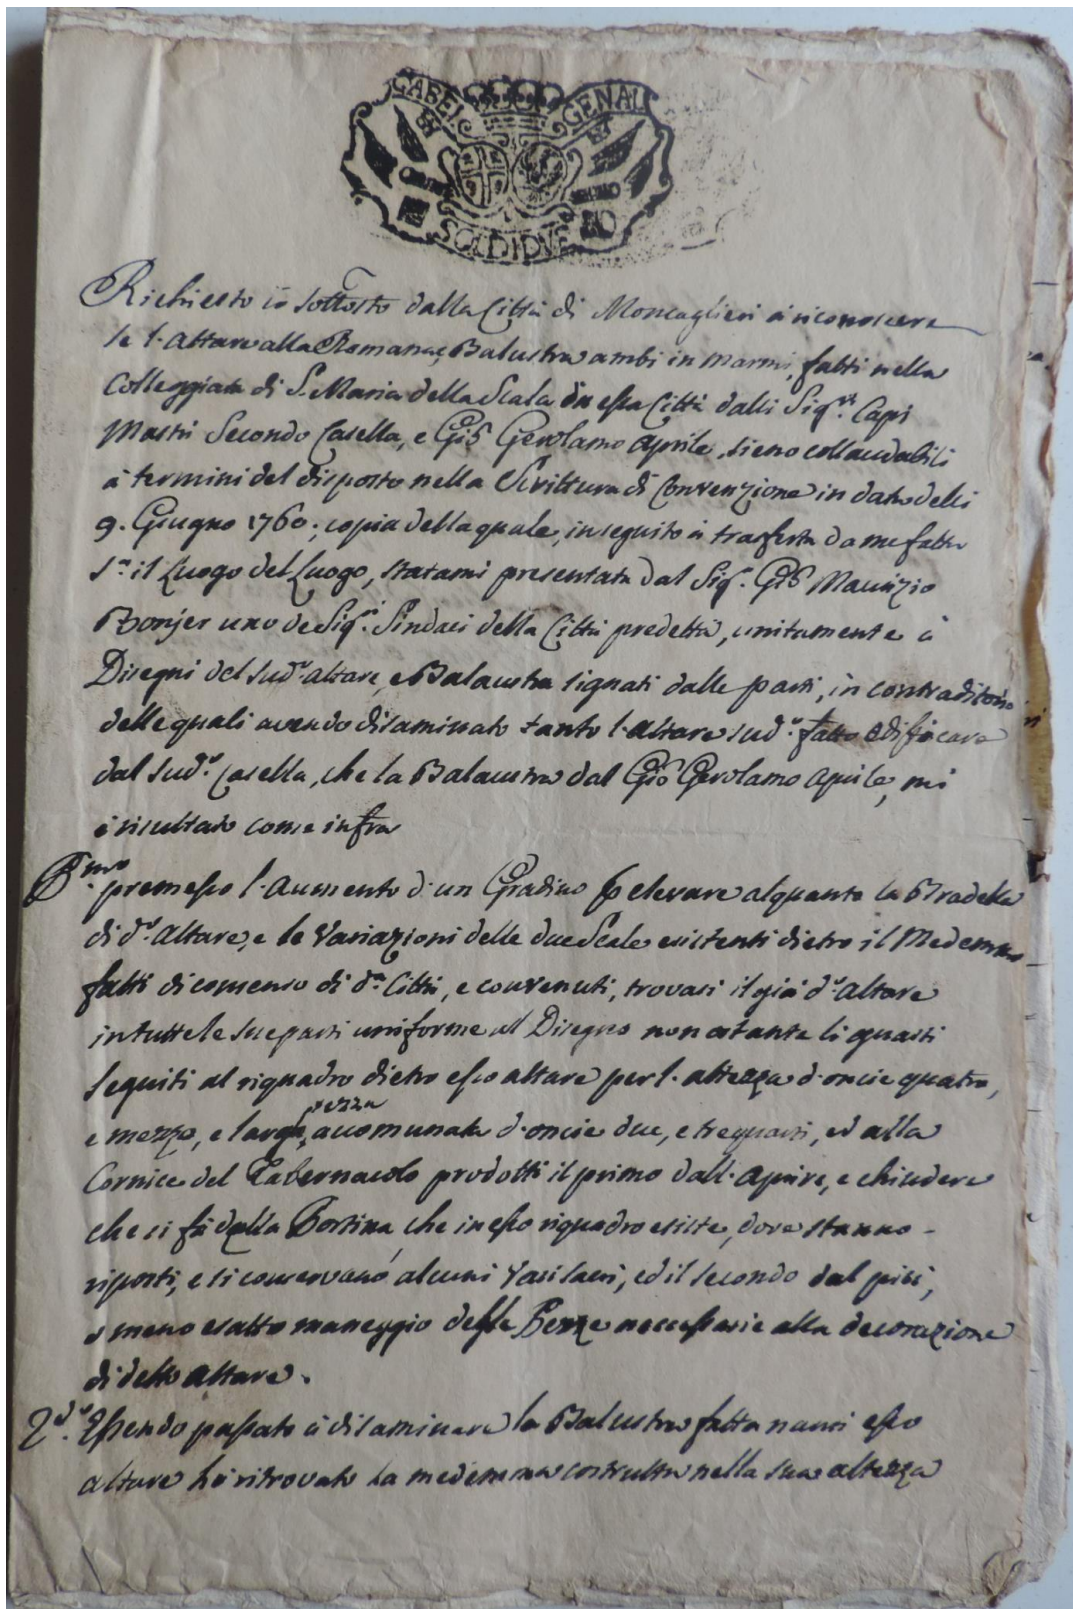 GABEL GENAL
SOLDI DVE
Richiesto io sottosto dalla Città di Moncaglieri à riconoscere
se l'Altare alla Romana, e Balustra ambi in marmi, fatti nella
Colleggiata di S. Maria della Scala di essa Città dalli Sigri. Capi
Mastri Secondo Casella, e Gió Gerolamo Aprile, sieno collaudabili
à termini del disposto nella Scrittura di Convenzione in data delli
9. Giugno 1760; copia della quale, in seguito à trasferta da me fatta
sul Luogo del Luogo, statami presentata dal Sigr. Gió Maurizio
Bonjer uno de Sigri. Sindaci della Città predetta, unitamente à
Disegni del sudo. altare, e Balaustra signati dalle parti, in contraditorio
delle quali avendo disaminato tanto l'altare sudo. fatto edificare
dal sudo. Casella, che la Balaustra dal Gió Gerolamo Aprile, mi
è risultato come infra
Pmo. premesso l'Aumento d'un Gradino p elevare alquanto la Bradella
di do. Altare, e le Variazioni delle due Scale esistenti dietro il Medemmo
fatti di consenso di da. Città, e convenuti, trovasi il già do. Altare
in tutte le sue parti uniforme al Disegno non ostante li guasti
seguiti al riquadro dietro esso altare per l'altezza d'oncie quatro,
e mezzo, e larghezza accomunata d'oncie due, e trequarti, ed alla
Cornice del Tabernacolo prodotti il primo dall'aprire, e chiudere
che si fà della Portina che in esso riquadro esiste, dove stanno
riposti, e si conservano alcuni Vasi sacri, ed il secondo dal più,
o meno esatto maneggio delle Pezze neccessarie alla decorazione
di detto altare.
2do. Essendo passato à disaminare la Balustra fatta nanti esso
altare hò ritrovato la medemma costrutta nella sua altezza